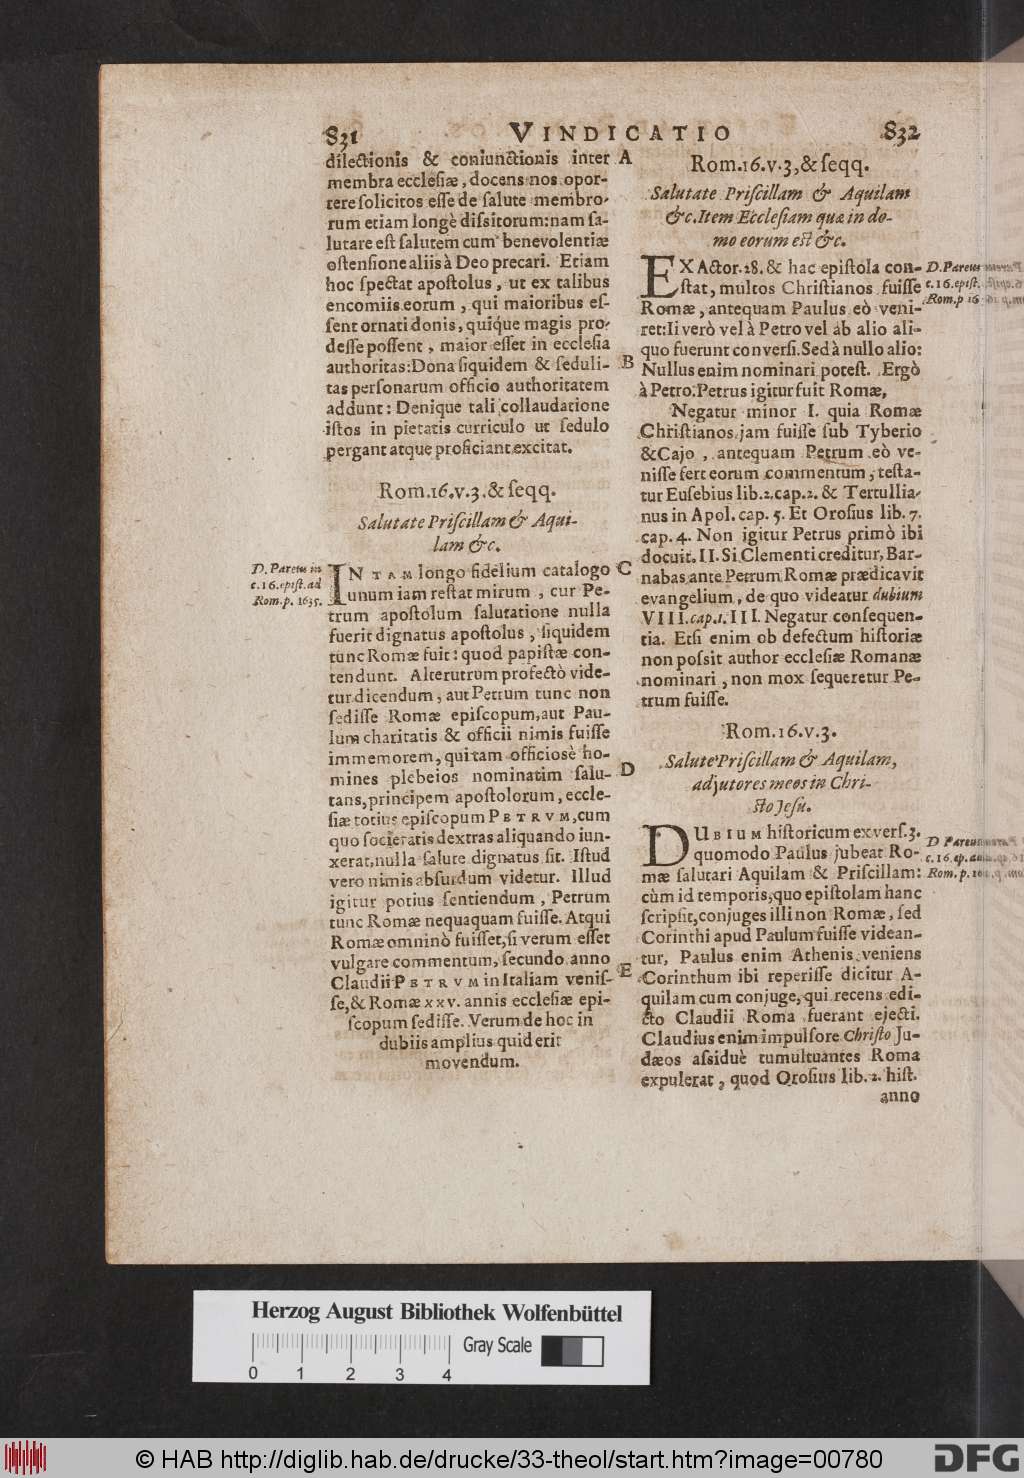 831
VINDICATIO
832
dilectionis & coniunctionis inter
membra ecclesiæ, docens nos opor-
tere solicitos esse de salute membro-
rum etiam longè dissitorum: nam sa-
lutare est salutem cum benevolentiæ
ostensione aliis à Deo precari. Etiam
hoc spectat apostolus, ut ex talibus
encomiis eorum, qui maioribus es-
sent ornati donis, quiq́ue magis pro-
desse possent, maior esset in ecclesia
authoritas: Dona siquidem & seduli-
tas personarum officio authoritatem
addunt: Denique tali collaudatione
istos in pietatis curriculo ut sedulo
pergant atque proficiant excitat.
Rom.16.v.3.& seqq.
Salutate Priscillam & Aqui-
lam &c.
D. Pareus in
c.16.epist.ad
Rom.p. 1635.
IN TAM longo fidelium catalogo
unum iam restat mirum, cur Pe-
trum apostolum salutatione nulla
fuerit dignatus apostolus, siquidem
tunc Romæ fuit: quod papistæ con-
tendunt. Alterutrum profectò vide-
tur dicendum, aut Petrum tunc non
sedisse Romæ episcopum, aut Pau-
lum charitatis & officii nimis fuisse
immemorem, qui tam officiosè ho-
mines plebeios nominatim salu-
tans, principem apostolorum, eccle-
siæ totius episcopum PETRVM, cum
quo societatis dextras aliquando iun-
xerat, nulla salute dignatus sit. Istud
vero nimis absurdum videtur. Illud
igitur potius sentiendum, Petrum
tunc Romæ nequaquam fuisse. Atqui
Romæ omninò fuisset, si verum esset
vulgare commentum, secundo anno
Claudii PETRVM in Italiam venis-
se, & Romæ xxv. annis ecclesiæ epi-
scopum sedisse. Verum de hoc in
dubiis amplius quid erit
movendum.
A
B
C
D
E
Rom.16.v.3,& seqq.
Salutate Priscillam & Aquilam
&c. Item Ecclesiam quæ in do-
mo eorum est &c.
D. Pareus
c.16.epist.
Rom.p 16
EX Actor.28. & hac epistola con-
stat, multos Christianos fuisse
Romæ, antequam Paulus eò veni-
ret: Ii verò vel à Petro vel ab alio ali-
quo fuerunt conversi. Sed à nullo alio:
Nullus enim nominari potest. Ergò
à Petro. Petrus igitur fuit Romæ,
Negatur minor I. quia Romæ
Christianos jam fuisse sub Tyberio
& Cajo, antequam Petrum eò ve-
nisse fert eorum commentum, testa-
tur Eusebius lib.2.cap.2. & Tertullia-
nus in Apol. cap. 5. Et Orosius lib. 7.
cap. 4. Non igitur Petrus primò ibi
docuit. II. Si Clementi creditur, Bar-
nabas ante Petrum Romæ prædicavit
evangelium, de quo videatur dubium
VIII. cap.1. III. Negatur consequen-
tia. Etsi enim ob defectum historiæ
non possit author ecclesiæ Romanæ
nominari, non mox sequeretur Pe-
trum fuisse.
Rom.16.v.3.
Salute Priscillam & Aquilam,
adjutores meos in Chri-
sto Jesu.
D Pareus
c.16.ep.
Rom.p.
DUBIUM historicum ex vers.3.
quomodo Paulus jubeat Ro-
mæ salutari Aquilam & Priscillam:
cùm id temporis, quo epistolam hanc
scripsit, conjuges illi non Romæ, sed
Corinthi apud Paulum fuisse videan-
tur, Paulus enim Athenis veniens
Corinthum ibi reperisse dicitur A-
quilam cum conjuge, qui recens edi-
cto Claudii Roma fuerant ejecti.
Claudius enim impulsore Christo Ju-
dæos assiduè tumultuantes Roma
expulerat, quod Orosius lib. 2. hist.
anno
Herzog August Bibliothek Wolfenbüttel
Gray Scale
0 1 2 3 4
© HAB http://diglib.hab.de/drucke/33-theol/start.htm?image=00780
DFG